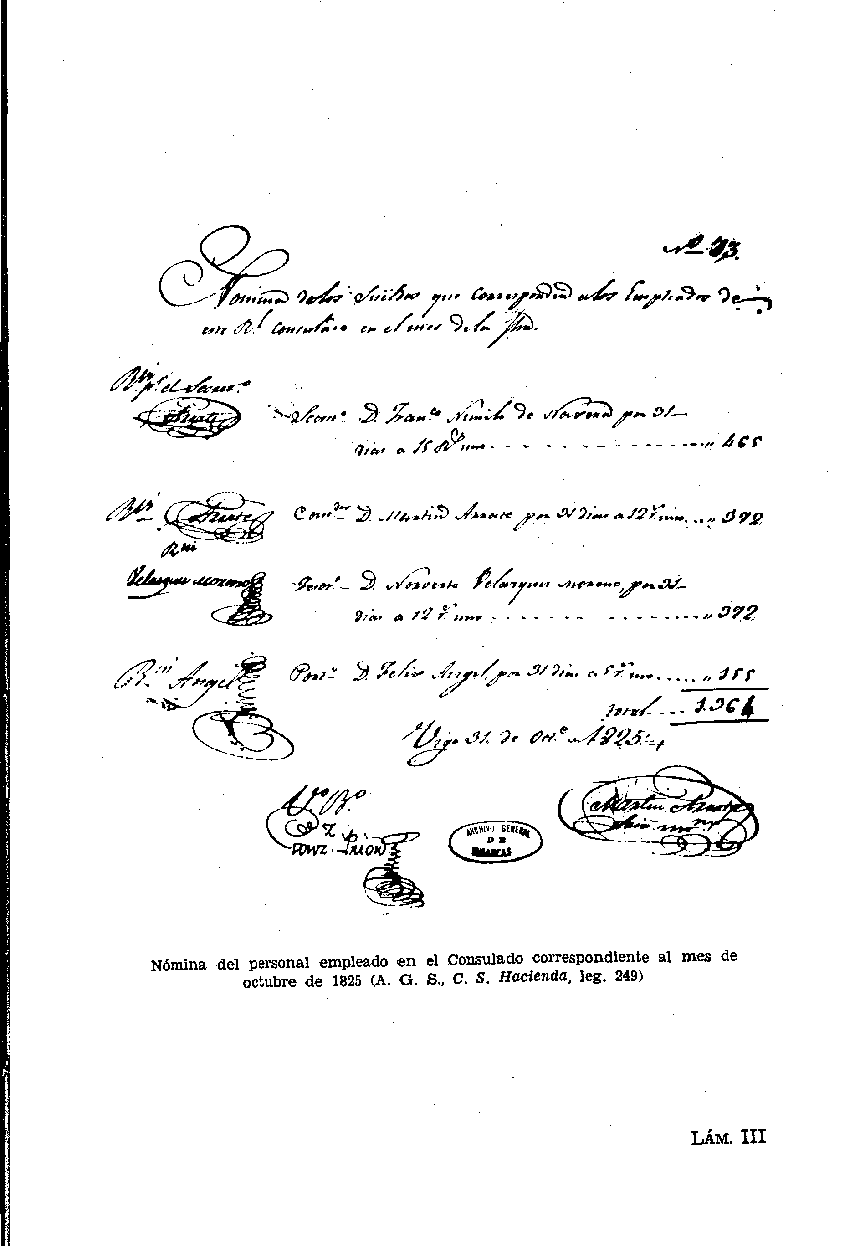 Nº 73.
Nomina de los Sueldos que corresponden a los Empleados de
este Rl. Consulado en el mes de la fha.
Rvi pr. el Secreo.
Secreo. D. Franco. de por 31
dias a 15 rs. uno 465
Rvi
Conor. D. Martin por 31 dias a 12 rs. uno 372
Rvi
Velazquez Moreno
Tesoro. D. Norverto Velazquez Moreno, por 31
dias a 12 rs. uno 372
Rvi Angel
Porto. D. Felix Angel por 31 dias a 5 rs. uno 155
total 1364
Vigo 31 de Oce. de 1825
Vo. Bo.
Martin
ARCHIVO GENERAL
DE
SIMANCAS
Nómina del personal empleado en el Consulado correspondiente al mes de
octubre de 1825 (A. G. S., C. S. Hacienda, leg. 249)
LÁM. III